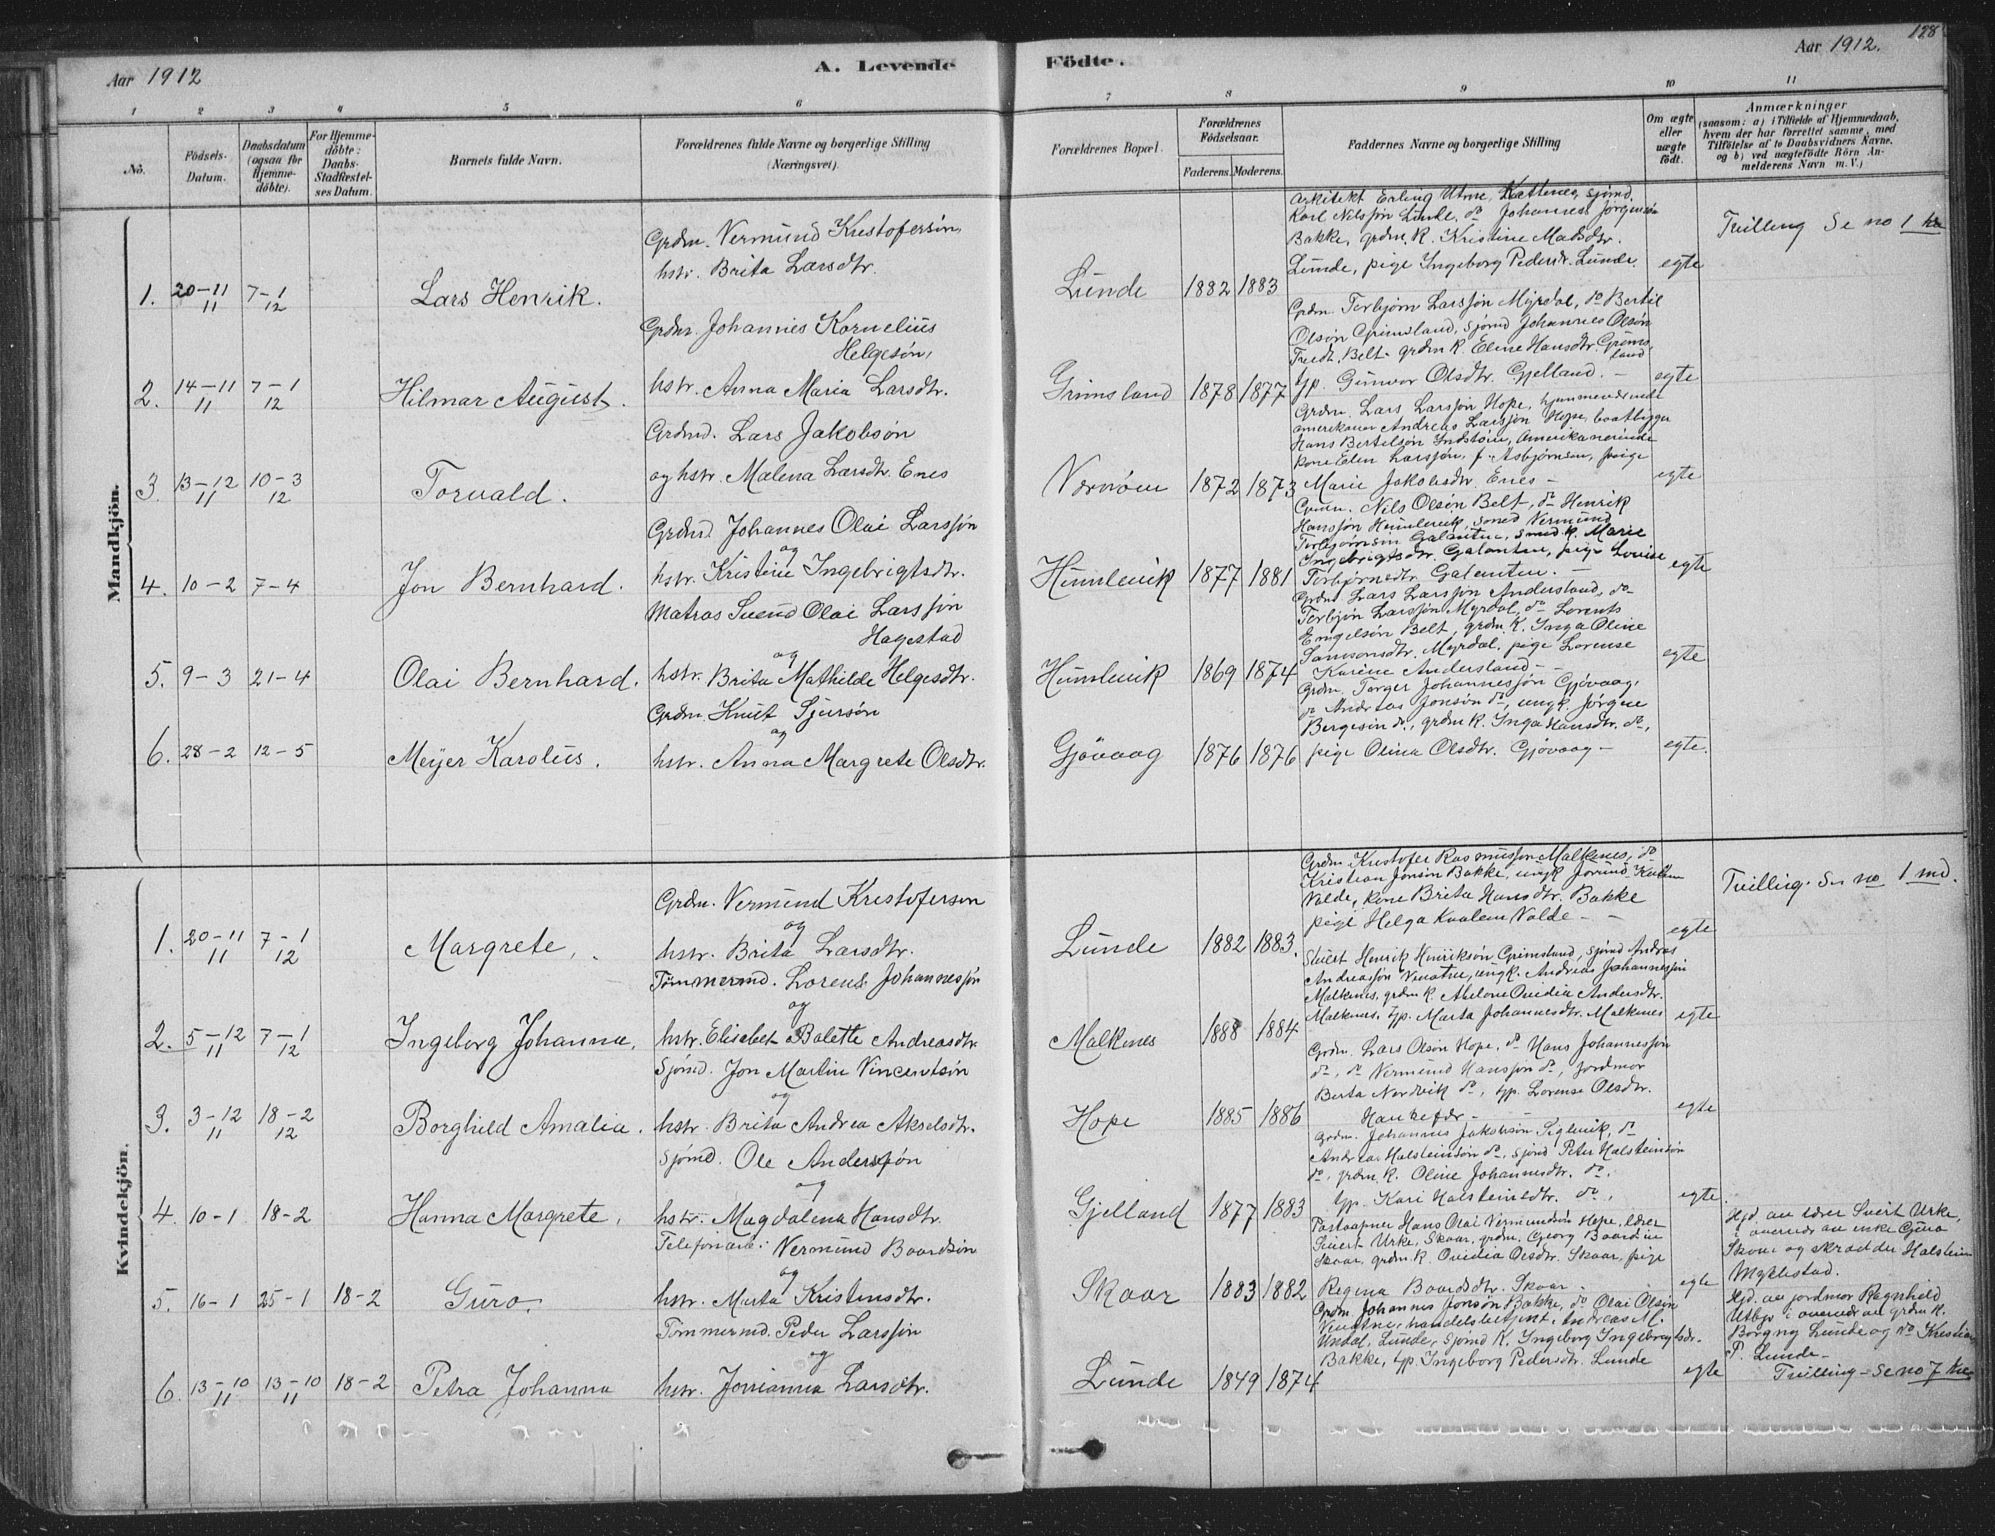 Aar 1912
A. Levende Födte.
Aar 1912. 128
1 2 3 4 5 6 7 8 9 10 11
No.
Födsels-Datum.
Daabsdatum (ogsaa för Hjemmedöbte).
For Hjemmedöbte: Daabs-Stadfæstelses Datum.
Barnets fulde Navn.
Forældrenes fulde Navne og borgerlige Stilling (Næringsvei).
Forældrenes Bopæl.
Forældrenes Födselsaar.
Faderens. Moderens.
Faddernes Navne og borgerlige Stilling
Om ægte eller uægte födt.
Anmærkninger
(saasom: a) i Tilfælde af Hjemmedaab,
hvem der har forrettet samme, med
Tilföielse af to Daabsvidners Navne,
og b) ved uægtefödte Börn An-
melderens Navn m. V.)
Mandkjön.
1. 20-11/11 7-1/12 Lars Henrik.
Grdm. Vermund Kristofersön,
hstr. Brita Larsdtr.
Lunde 1882 1883
Arkitekt Erling Utne, sjömd.
Karl Nilssön Lunde, do Johannes Jörgensön
Bakke, grdm. k. Kristine Matsdtr.
Lunde, pige Ingeborg Pedersdr. Lunde.
egte
Tvilling Se no 1 kv
2. 14-11/11 7-1/12 Hilmar August.
Grdm. Johannes Kornelius
Helgesön,
hstr. Anna Maria Larsdtr.
Grimsland 1878 1877
Grdm. Torbjörn Larssön Myrdal, do Bertil
Olsön Grimsland, sjömd Johannes Olsön
Belt, grdm k. Eline Hansdtr. Grims-
land
tjp. Gunvor Olsdtr. Gjelland. -
egte
3. 13-12/11 10-3/12 Torvald.
Grdmd. Lars Jakobsön
og hstr. Malena Larsdtr. Enes
1872 1873
Grdm. Lars Larssön Hope, hjemmeværende
amerikaner Andreas Larssön Hope, baatbygger
Hans Bertelsön
kone Elen Larssön, f. Asbjörnsen, pige
Marie Jakobsdtr. Enes -
egte
4. 10-2 7-4 Jon Bernhard.
Grdmd. Johannes Olai Larssön
og
hstr. Kristine Ingebrigtsdtr.
Humlevik 1877 1881
Grdm. Nils Olsön Belt, do Henrik
Hanssön Humlevik, smed Vermund
Torbjörnsen Galanten, smed k. Marie
Ingebrigtsdtr. Galanten, pige Louise
Torbjörnsdtr. Galanten. -
egte
5. 9-3 21-4 Olai Bernhard.
Matros Svend Olai Larssön
Hagestad
og
hstr. Brita Mathilde Helgesdtr.
Humlevik 1869 1874
Grdm Lars Larssön Andersland, do
Torbjön Larssön Myrdal, do Lorents
Engelsön Belt, grdm. k. Inga Oline
Samsonsdtr. Myrdal, pige Lorense
Karine Andersland -
egte
6. 28-2 12-5 Meyer Karolus.
Grdm. Knut Sjursön
og
hstr. Anna Margrete Olsdtr.
Gjövaag 1876 1876
Grdm. Torger Johannessön Gjövaag,
do Andreas Jonsön do, ungk. Jörgen
Bergesön do, grdm k. Inga Hansdtr. do,
pige Olina Olsdtr. Gjövaag -
egte.
Kvindekjön.
1. 20-11/11 7-1/12 Margrete,
Grdm. Vermund Kristoferson
og
hstr. Brita Larsdtr.
Lunde 1882 1883.
Grdm. Kristofer Rasmussön Malkenes, do
Kristian Jonsön Bakke, ungk
Valde, kone Brita Hansdtr. Bakke
pige Helga Kvalem Valde -
egte
Tvilling. Se no 1 md.
2. 5-12/11 7-1/12 Ingeborg Johanna,
Tömmermd. Lorens Johannessön
og
hstr. Elisabet Balette Andreasdtr.
Malkenes 1888 1884
Henrik Henriksön Grimsland, sjömd Andreas
Andreassön Venatne, ungk. Andreas Johannessön
Malkenes, grdm k. Abelone Ovidia Andersdtr.
Malkenes, tjp. Marta Johannesdtr. Malkenes
egte
3. 3-12/11 18-2/12 Borghild Amalia.
Sjömd. Jon Martin Vincentsön
og
hstr. Brita Andrea Akselsdtr.
Hope 1885 1886
Grdm. Lars Olsön Hope, do Hans Johannessön
do, do Vermund Hanssön do, jordmor
Berta Nordvik do, tjp. Lorense Olsdtr.
egte
4. 10-1 18-2 Hanna Margrete,
Sjömd. Ole Anderssön
og
hstr. Magdalena Hansdtr.
Gjelland 1877 1883
Grdm. Johannes Jakobsön Siglevik, do
Andreas Halsteinsön do, sjömd Peter Halsteinsön
do, grdm k. Oline Johannesdtr. do,
tjp. Kari Halsteinsdtr. do,
egte
5. 16-1 25-1 18-2 Guro.
Telefonarb. Vermund Baardsön
og
hstr. Marta Kristensdtr.
Skaar 1883 1882
Postaapner Hans Olai Vermundsön Hope, lærer
Sivert Urke, Skaar, grdm. Georg Baardsön
Skaar, grdm k. Ovidia Olsdtr. Skaar, pige
Regina Baardsdtr. Skaar -
egte
Hjd. av lærer Sivert Urke,
i overvær av enke Guro
Skaar og skrædder Halstein
Myklestad.
6. 13-10/11 13-10/11 18-2 Petra Johanna
Tömmermd. Peder Larssön
og
hstr. Jonianna Larsdtr.
Lunde 1849 1874
Grdm. Johannes Jonsön Bakke, do Olai Olsön
Venatne, handelsbetjent Andreas M.
Undal, Lunde, sjömd k. Ingeborg Ingebrigtsdr.
Bakke, tjp. Ingeborg Pedersdtr. Lunde
egte
Hjd. av jordmor Ragnhild
Utbjo i overvær av grdm k.
Borgny Lunde og do Kristian
P. Lunde -
Tvilling - Se no 7 kv.